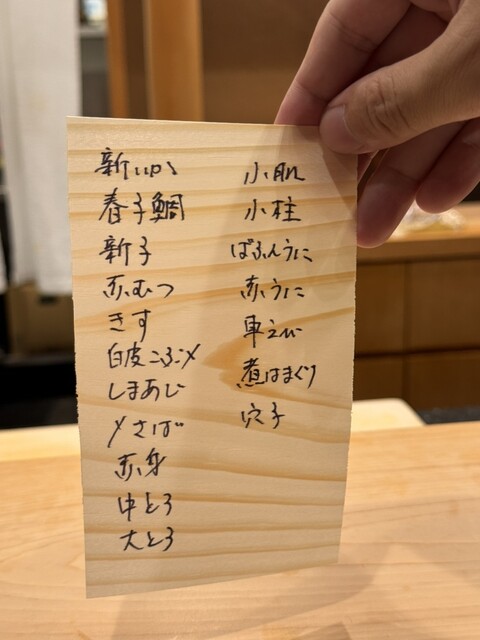 新いか
春子鯛
新子
赤むつ
きす
白皮こぶ〆
しまあじ
〆さば
赤身
中とろ
大とろ
小肌
小柱
ばふんうに
赤うに
車えび
煮はまぐり
穴子